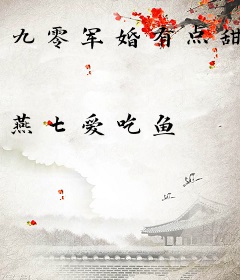 九零军婚有点甜
燕七爱吃鱼